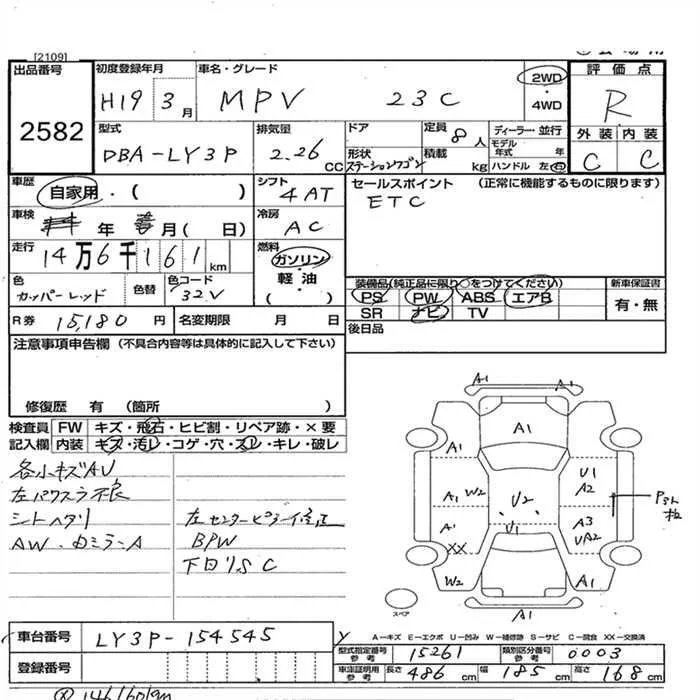 [2109]
出品番号
2582
初度登録年月
H19 3月
車名・グレード
MPV 23C
2WD
・
4WD
評価点
R
外装 内装
C C
型式
DBA-LY3P
排気量
2.26 CC
ドア
形状
ステーションワゴン
定員 8人
積載 kg
ディーラー・並行
モデル年式 年
ハンドル 左・右
車歴
自家用・( )
シフト
4AT
セールスポイント (正常に機能するものに限ります)
ETC
車検
年 月( 日)
冷房
AC
走行
14万6千161km
燃料
ガソリン・
軽油
( )
色
カッパーレッド
色替
色コード
32V
装備品(純正品に限り○をつけてください)
PS PW ABS エアB
SR ナビ TV
新車保証書
有・無
R券 15,180円
名変期限 月 日
後日品
注意事項申告欄 (不具合内容等は具体的に記入して下さい)
修復歴 有 (箇所 )
検査員
記入欄
FW キズ・飛石・ヒビ割・リペア跡・×要
内装 キズ・汚レ・コゲ・穴・スレ・キレ・破レ
各小キズAU
左パワスラ不良
シートヘタリ
AW・内ミラーA
左センターピラー修正
BPW
下回りS C
A1
A1
A1
A1
A1 W2
A1
XX
W2
U2
U1
U1
A2
A3
UA2
A1
A1
スペア
A－キズ E－エクボ U－凹み W－補修跡 S－サビ C－腐食 XX－交換済
車台番号
LY3P-154545
登録番号
型式指定番号
参考
15261
類別区分番号
参考
0003
車庫証明用
参考
長さ 486 cm
幅 185 cm
高さ 168 cm